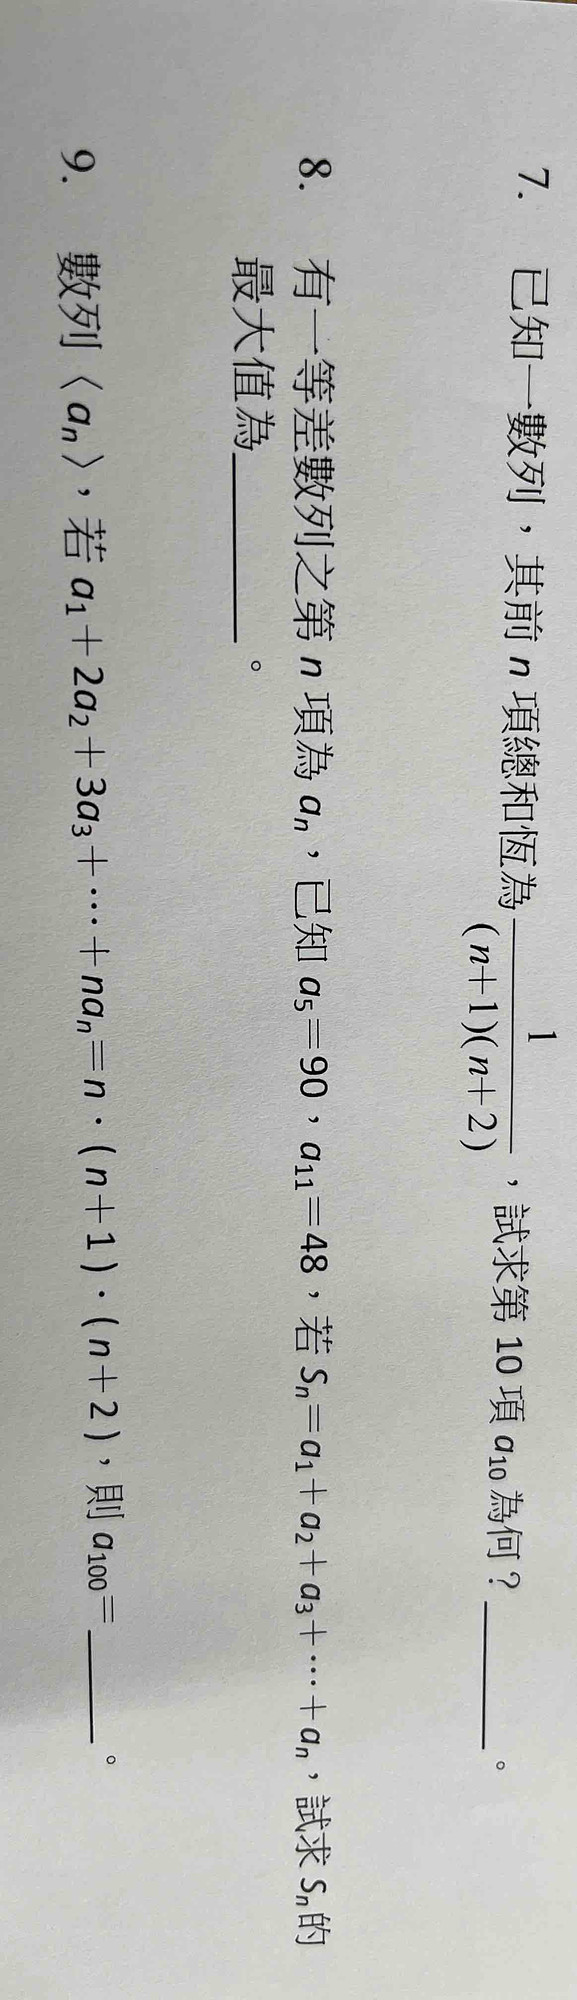 7. 已知一數列，其前 n 項總和恆為 \frac{1}{(n+1)(n+2)}，試求第 10 項 a₁₀ 為何？________。
8. 有一等差數列之第 n 項為 aₙ，已知 a₅＝90，a₁₁＝48，若 Sₙ＝a₁＋a₂＋a₃＋⋯＋aₙ，試求 Sₙ 的
最大值為________。
9. 數列〈aₙ〉，若 a₁＋2a₂＋3a₃＋⋯＋naₙ＝n·(n＋1)·(n＋2)，則 a₁₀₀＝________。